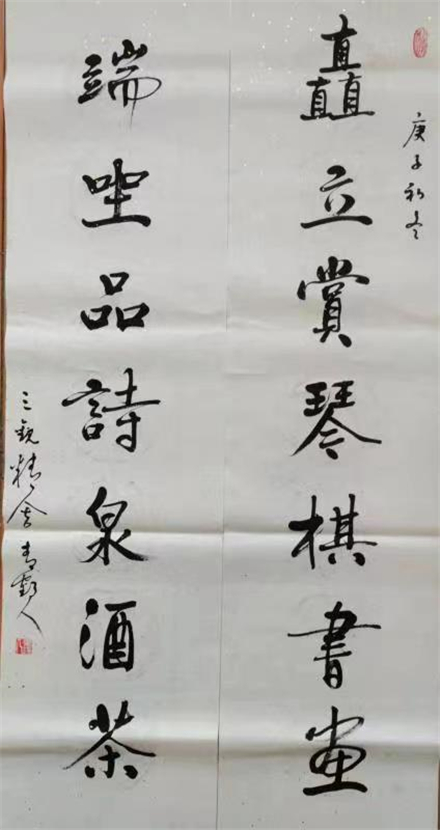 庚子初冬
矗立賞琴棋書畫
端坐品詩泉酒茶
三觀精舍